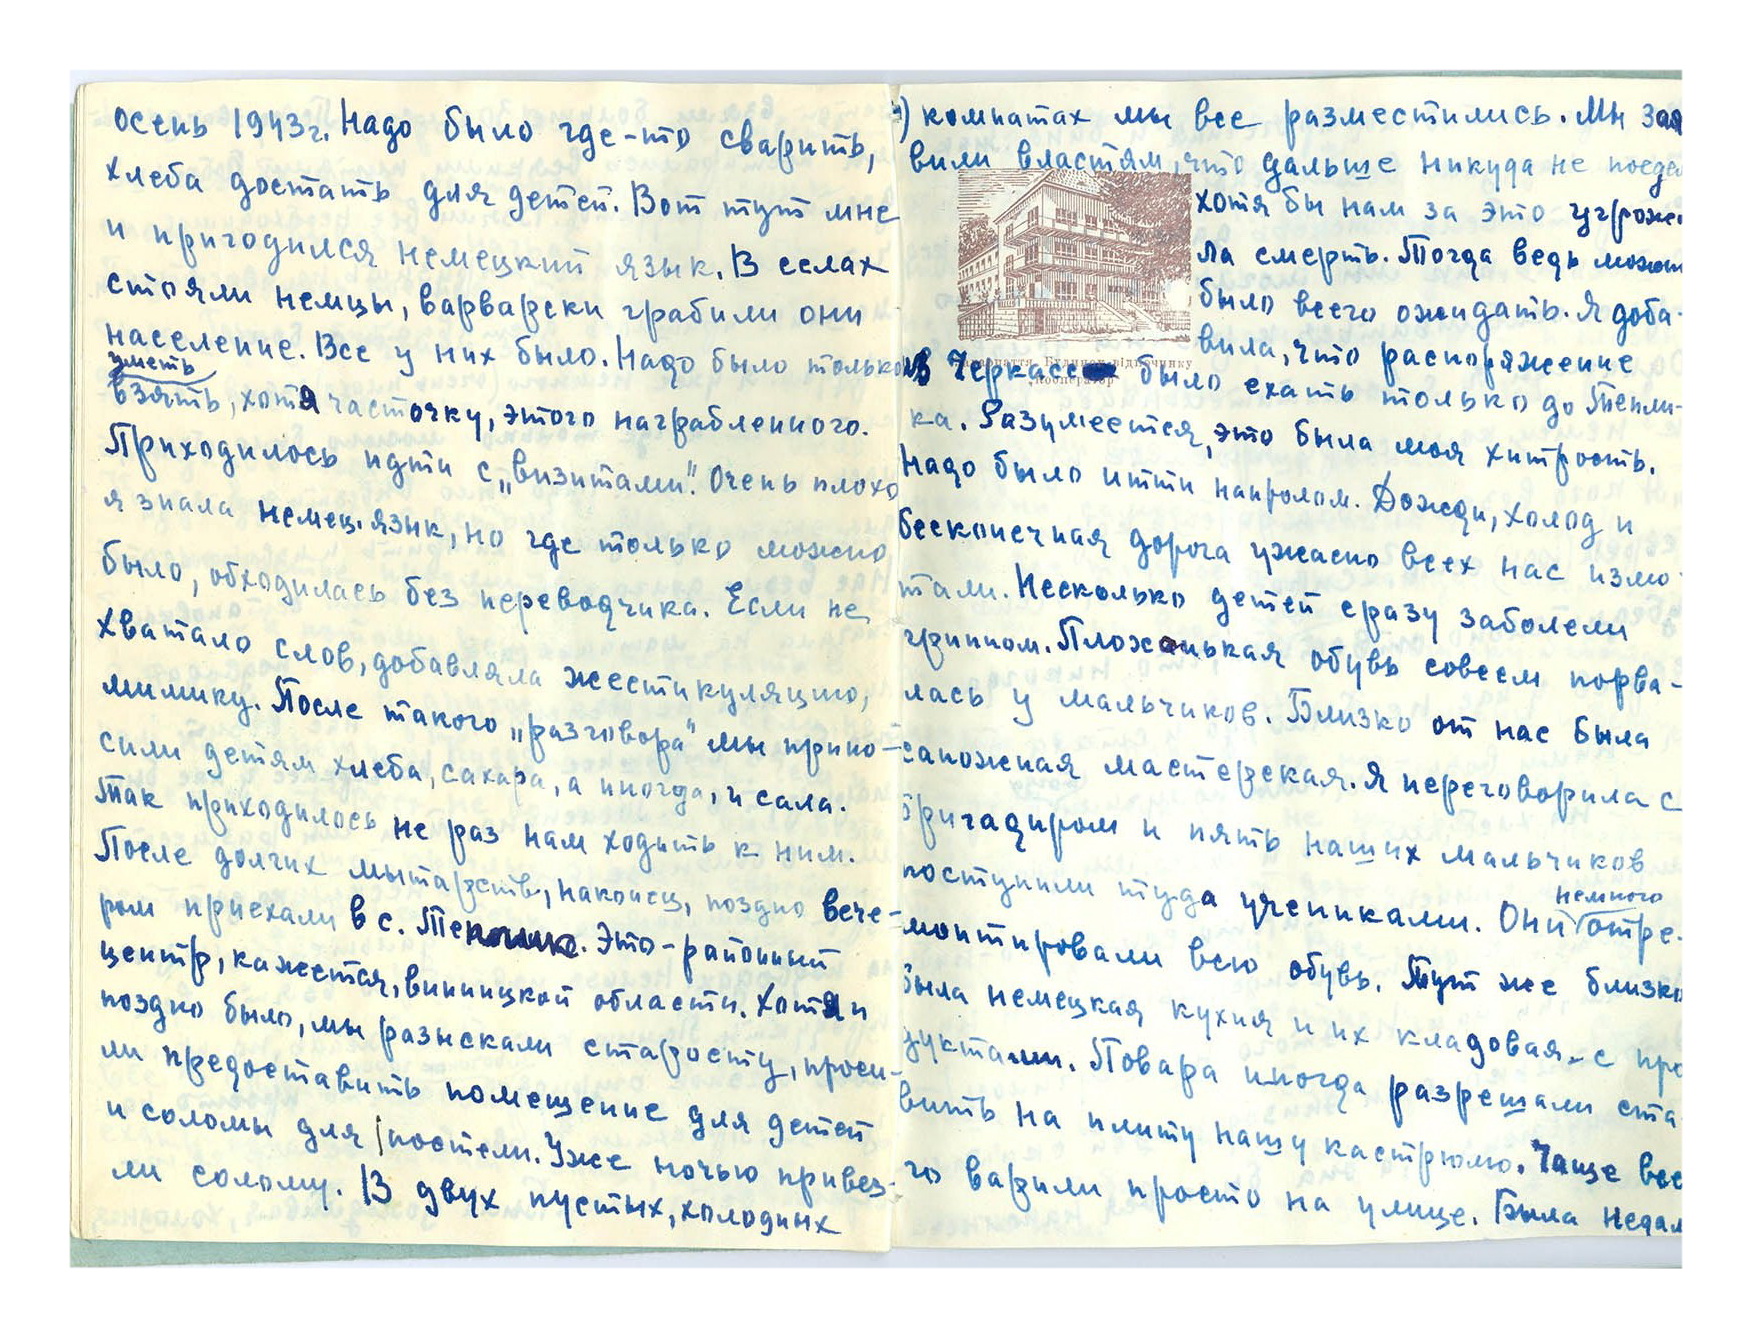 осень 1943г. Надо было где-то сварить,
хлеба достать для детей. Вот тут мне
и пригодился немецкий язык. В селах
стояли немцы, варварски грабили они
население. Все у них было. Надо было только
уметь
взять, хотя часточку, этого награбленного.
Приходилось идти с „визитами". Очень плохо
я знала немец. язик, но где только можно
было, обходилась без переводчика. Если не
хватало слов, добавляла жестикуляцию,
мимику. После такого „разговора" мы прино-
сили детям хлеба, сахара, а иногда, и сала.
Так приходилось не раз нам ходить к ним.
После долгих мытарств, наконец, поздно вече-
ром приехали в с. . Это-районный
центр, кажется, винницкой области. Хотя и
поздно было, мы разыскали старосту, проси-
ли предоставить помещение для детей
и соломы для постели. Уже ночью привез-
ли солому. В двух пустых, холодных
комнатах мы все разместились. Мы зая
вили властям, что дальше никуда не поеде
хотя бы нам за это угрожа
ла смерть. Тогда ведь можно
было всего ожидать. Я доба-
вила, что распоряжение
Будинок відпочинку
„Кооператор"
в Черкассы было ехать только до Тепли-
ка. Разумеется, это была моя хитрость.
Надо было итти напролом. Дожди, холод и
бесконечная дорога ужасно всех нас измо-
тали. Несколько детей сразу заболели
гриппом. Плохонькая обувь совсем порва-
лась у мальчиков. Близко от нас была
сапожная мастерская. Я переговорила с
бригадиром и пять наших мальчиков
поступили туда учениками. Они отре-
немного
монтировали всю обувь. Тут же близко
была немецкая кухня и их кладовая-с про
дуктами. Повара иногда разрешали ста-
вить на плиту нашу кастрюлю. Чаще все
го варили просто на улице. Была недал